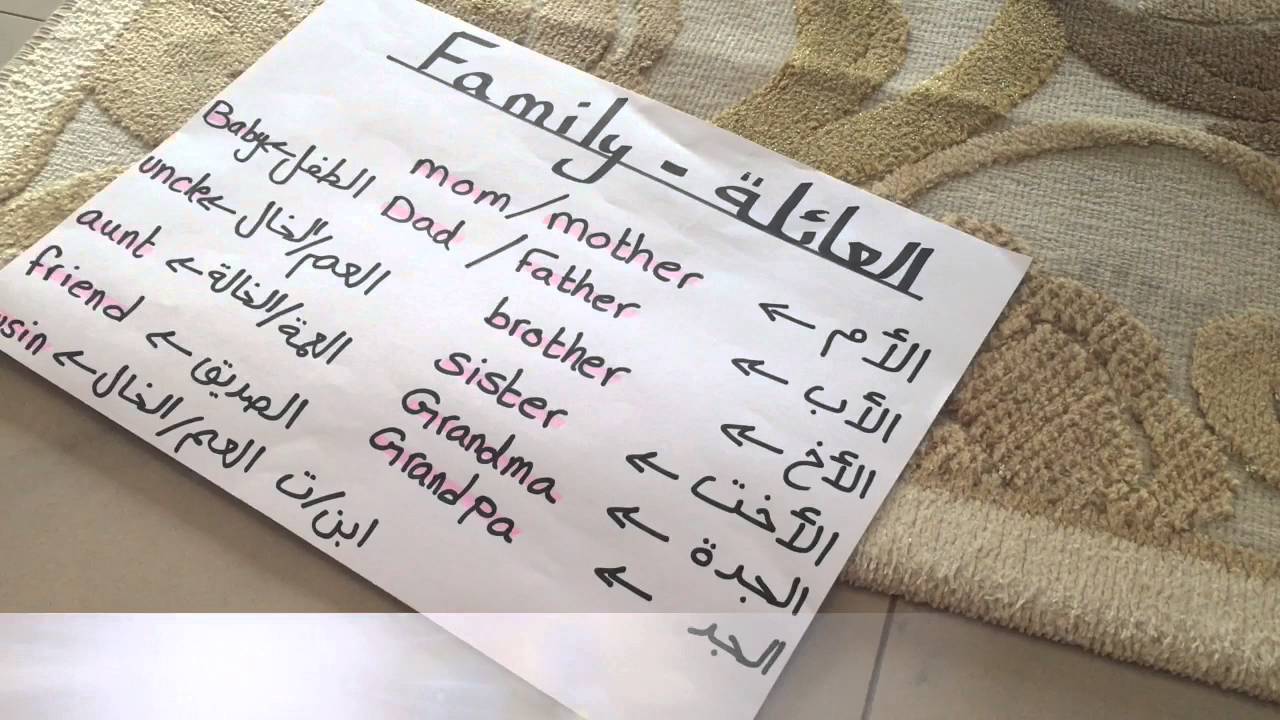 Family - العائلة
الأم ← mom/mother
الأب ← Dad / Father
الأخ ← brother
الأخت ← sister
الجدة ← Grandma
الجد ← Grandpa
الطفل ← Baby
العم/الخال ← uncle
العمة/الخالة ← aunt
الصديق ← friend
ابن/ت العم/الخال ←